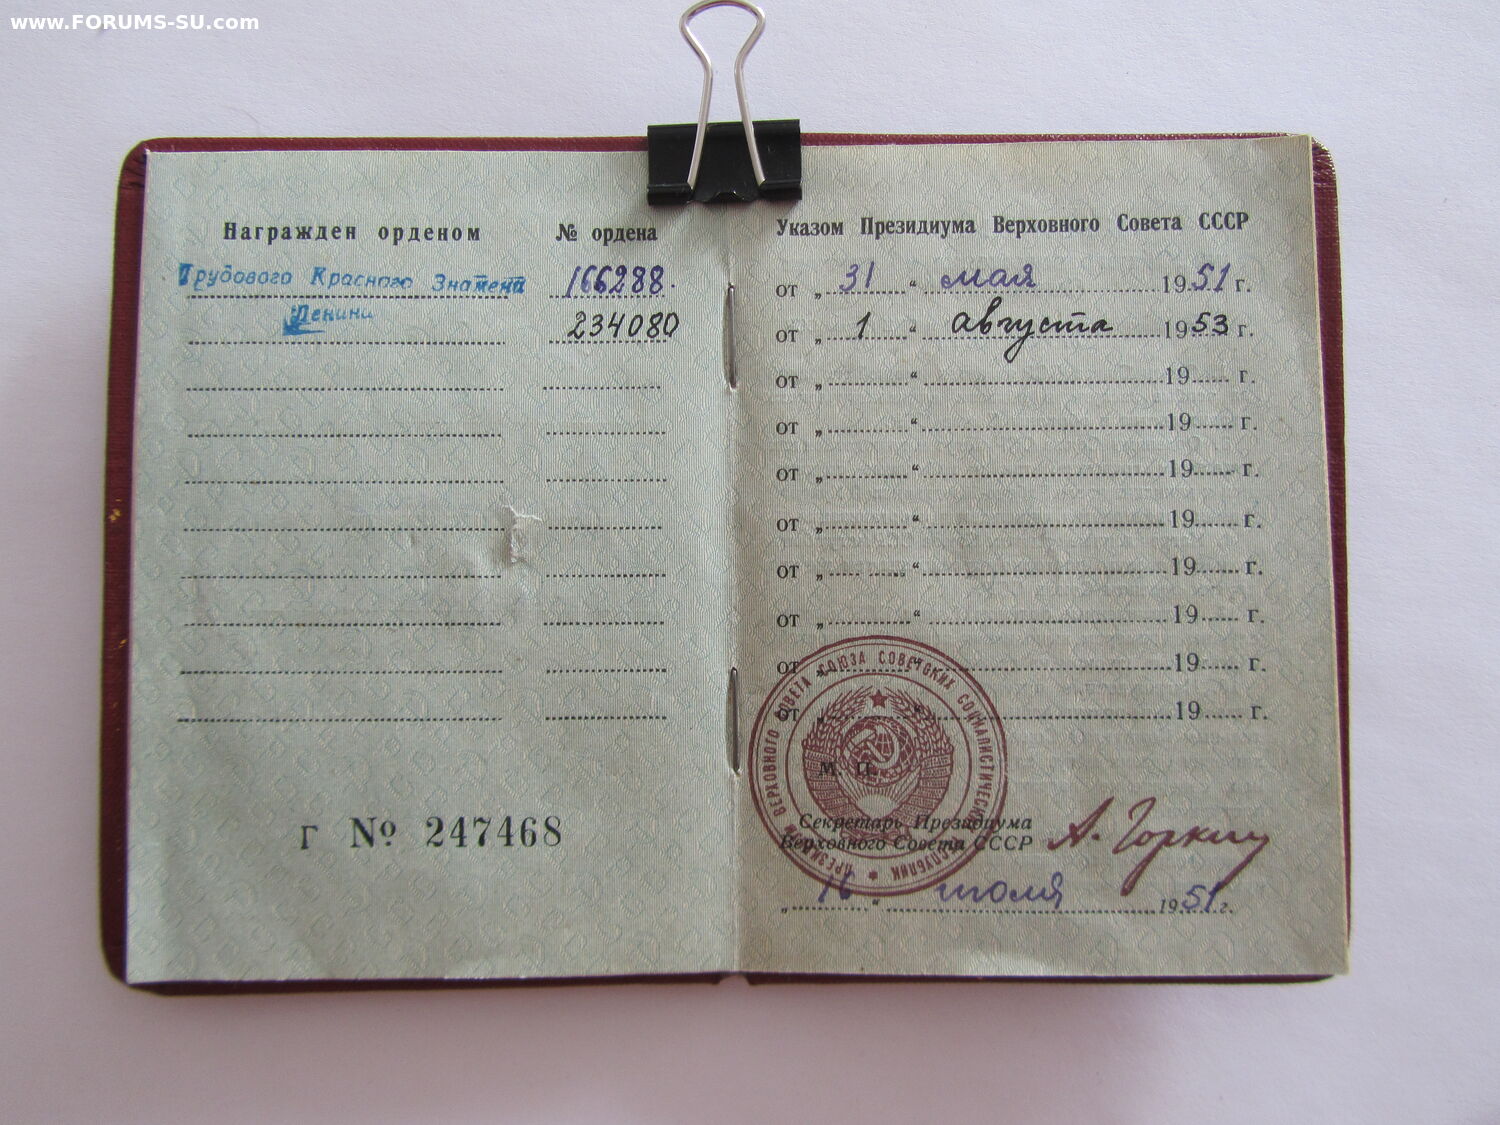 www.FORUMS-SU.com
Награжден орденом № ордена
Трудового Красного Знамени 166288.
Ленина 234080
Г № 247468
Указом Президиума Верховного Совета СССР
от „ 31 “ мая 1951 г.
от „ 1 “ августа 1953 г.
от „ “ 19 г.
от „ “ 19 г.
от „ “ 19 г.
от „ “ 19 г.
от „ “ 19 г.
от „ “ 19 г.
от „ “ 19 г.
от „ “ 19 г.
ПРЕЗИДИУМ ВЕРХОВНОГО СОВЕТА СОЮЗА СОВЕТСКИХ СОЦИАЛИСТИЧЕСКИХ РЕСПУБЛИК
М. П.
Секретарь Президиума
Верховного Совета СССР А. Горкин
„ 16 “ июля 1951 г.